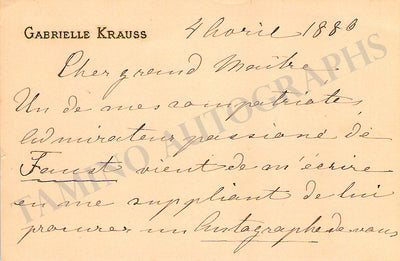 GABRIELLE KRAUSS
4 Avril 1880
Cher grand Maître
Un de mes compatriotes,
admirateur passioné de
Faust vient de m'écrire
en me suppliant de lui
procurer un Autographe de vous
TAMINO AUTOGRAPHS